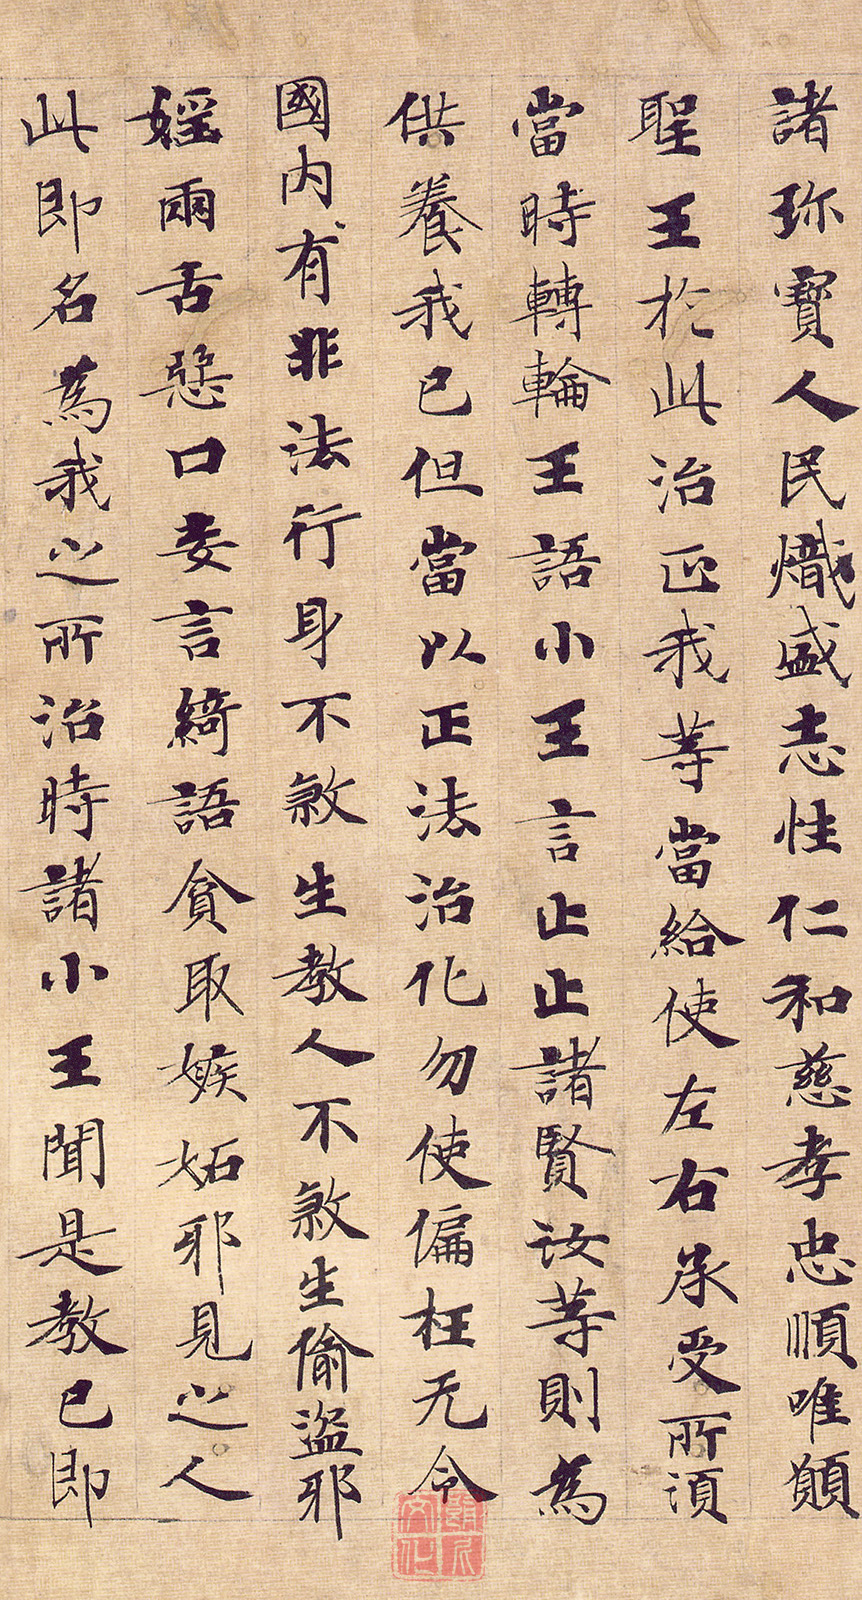 諸珎寶人民熾盛志性仁和慈孝忠順唯願
聖王於此治正我等當給使左右承受所湏
當時轉輪王語小王言止止諸賢汝等則為
供養我已但當以正法治化勿使偏枉无令
國内有非法行身不煞生教人不煞生偷盗耶
婬兩舌惡口妄言綺語貪取嫉妬耶見之人
此即名為我之所治時諸小王聞是教已即